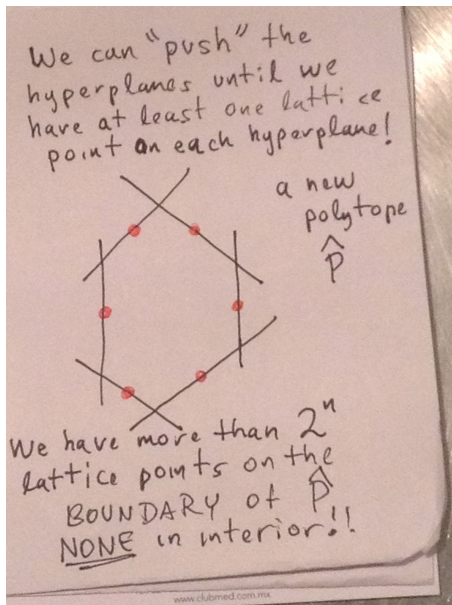 We can "push" the
hyperplanes until we
have at least one lattice
point on each hyperplane!
a new
polytope
P̂
We have more than 2ⁿ
lattice points on the
BOUNDARY of P̂
NONE in interior!!
www.clubmed.com.mx